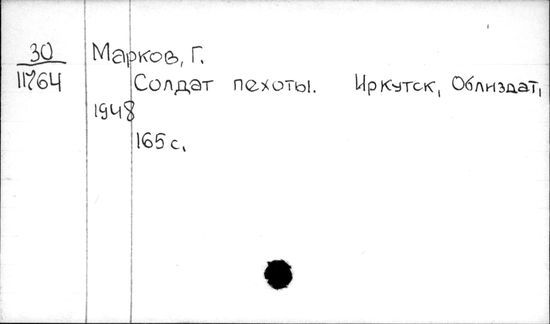 30
11764
Марков, Г.
Солдат пехоты. Иркутск, Облиздат,
1948
165 с.